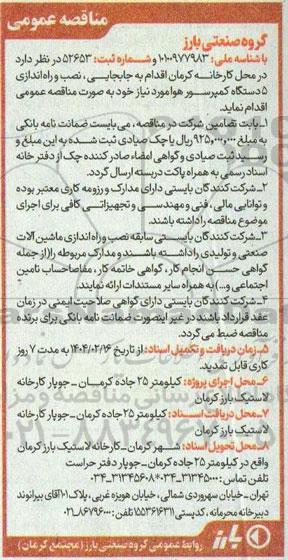 مناقصه عمومی
گروه صنعتی بارز
با شناسه ملی: ۱۰۱۰۰۹۷۷۹۸۳ و شماره ثبت: ۵۲۶۵۳ در نظر دارد
در محل کارخانه کرمان اقدام به جابجایی، نصب و راه‌اندازی
۵ دستگاه کمپرسور هوا مورد نیاز خود به صورت مناقصه عمومی
اقدام نماید.
۱_ بابت تضامین شرکت در مناقصه، می‌بایست ضمانت نامه بانکی
به مبلغ ۹۲۵,۰۰۰,۰۰۰ ریال یا چک صیادی ثبت شده به این مبلغ و
رسید ثبت صیادی و گواهی امضاء صادر کننده چک از دفتر خانه
اسناد رسمی به همراه پاکت دربسته ارسال گردد.
۲_ شرکت کنندگان بایستی دارای مدارک و رزومه کاری معتبر بوده
و توانایی مالی، فنی و مهندسی و تجهیزاتی کافی برای اجرای
موضوع مناقصه را داشته باشند.
۳_ شرکت کنندگان بایستی سابقه نصب و راه اندازی ماشین آلات
صنعتی و تولیدی را داشته باشند و مدارک مربوطه را (از جمله
گواهی حسن انجام کار، گواهی خاتمه کار، مفاصاحساب تامین
اجتماعی و...) به همراه سایر مستندات ارائه نمایند.
۴_ شرکت کنندگان بایستی دارای گواهی صلاحیت ایمنی در زمان
عقد قرارداد باشند در غیر اینصورت ضمانت نامه بانکی برای برنده
مناقصه ضبط می گردد.
۵_ زمان دریافت و تکمیل اسناد: از تاریخ ۱۴۰۴/۰۲/۱۶ به مدت ۷ روز
کاری قابل تمدید.
۶_ محل اجرای پروژه: کیلومتر ۲۵ جاده کرمان - جوپار کارخانه
لاستیک بارز کرمان
۷_ محل دریافت اسناد: کیلومتر ۲۵ جاده کرمان - جوپار کارخانه
لاستیک بارز کرمان
۸_ محل تحویل اسناد: شهر کرمان - کارخانه لاستیک بارز کرمان
واقع در کیلومتر ۲۵ جاده کرمان - جوپار دفتر حراست
تلفن تماس: ۳۱۳۴۵۰۰۰-۰۳۴ * ۳۱۳۴۵۶۰۸-۰۳۴
تهران - خیابان سهروردی شمالی، خیابان هویزه غربی، پلاک ۱۰۱ آقای بیرانوند
دبیرخانه محرمانه، کدپستی ۱۵۵۳۶۱۶۳۱۱ تلفن: ۸۶۷۹۶۰۰۰-۰۲۱
بارز روابط عمومی گروه صنعتی بارز (مجتمع کرمان)